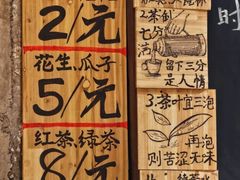 2/元
花生、瓜子
5/元
红茶、绿茶
8/元
2.茶倒
七分
满
留下三分
是人情
3.茶叶宜三泡
再泡
则苦涩无味
时